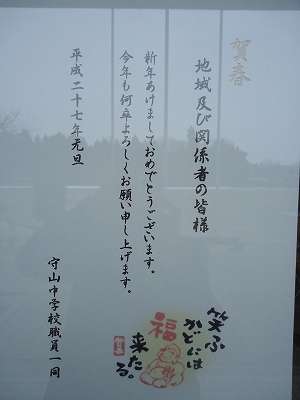 賀春
地域及び関係者の皆様
新年あけましておめでとうございます。
今年も何卒よろしくお願い申し上げます。
平成二十七年元旦
守山中学校職員一同
笑ふ
かどには
福
来たる。